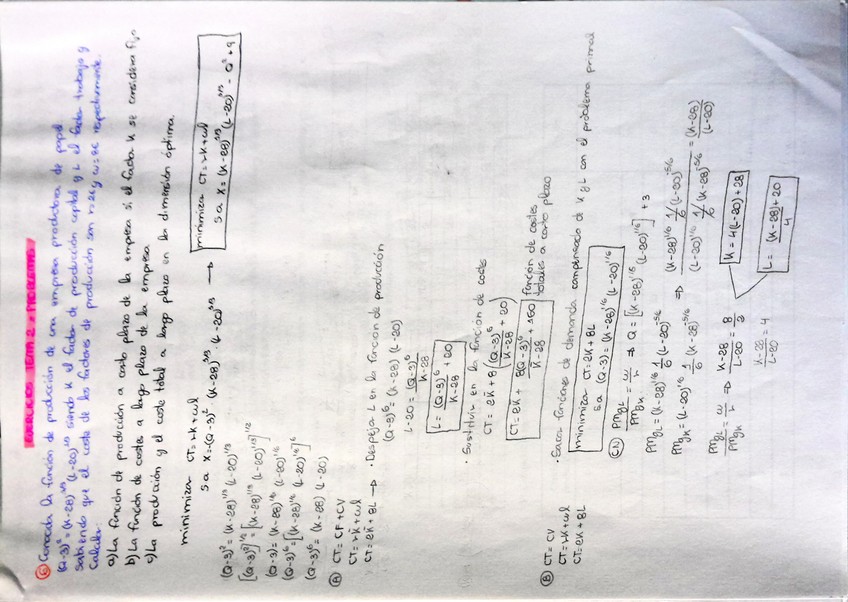 EJERCICIOS TEMA 2 - PROBLEMAS
⑥ Conocida la función de producción de una empresa productora de papel
(Q-3)² = (K-28)^1/3 (L-20)^1/3 siendo K el factor de producción capital y L el factor trabajo y
sabiendo que el coste de los factores de producción son r=2€ y w=8€ respectivamente.
Calcula:
a) La función de producción a corto plazo de la empresa si el factor K se considera fijo
b) La función de costes a largo plazo de la empresa
c) La producción y el coste total a largo plazo en la dimensión óptima.
minimizar CT = rK + wL
s a x = -(Q-3)² (K-28)^1/3 (L-20)^1/3 →
minimizar CT = rK + wL
s a x = (K-28)^1/3 (L-20)^1/3 - Q² + 9
(Q-3)² = (K-28)^1/3 (L-20)^1/3
[(Q-3)²]^1/2 = [(K-28)^1/3 (L-20)^1/3]^1/2
(Q-3) = (K-28)^1/6 (L-20)^1/6
(Q-3)^6 = [(K-28)^1/6 (L-20)^1/6]^6
(Q-3)^6 = (K-28) (L-20)
Ⓐ CT = CF + CV
CT = rK̄ + wL
CT = 2K̄ + 8L → · Despeja L en la función de producción
(Q-3)^6 = (K-28) (L-20)
L-20 = (Q-3)^6 / K-28
L = (Q-3)^6 / K-28 + 20
· Sustituir en la función de costes
CT = 2K̄ + 8 ((Q-3)^6 / K̄-28 + 20)
CT = 2K̄ + 8(Q-3)^6 / K̄-28 + 160 función de costes
totales a corto plazo
Ⓑ CT = CV
CT = rK + wL
CT = 2K + 8L
· Sacar funciones de demanda compensada de K y L con el problema primal
minimizar CT = 2K + 8L
s a (Q-3) = (K-28)^1/6 (L-20)^1/6
PMgL / PMgK = w / r ⇒ Q = [(K-28)^1/6 (L-20)^1/6] + 3
PMgL = (K-28)^1/6 1/6 (L-20)^-5/6
PMgK = (L-20)^1/6 1/6 (K-28)^-5/6 ⇒ (K-28)^1/6 1/6 (L-20)^-5/6 / (L-20)^1/6 1/6 (K-28)^-5/6 = (K-28) / (L-20)
PMgL / PMgK = w / r ⇒ K-28 / L-20 = 8 / 2
K-28 / L-20 = 4
K = 4(L-20) + 28
L = (K-28) / 4 + 20